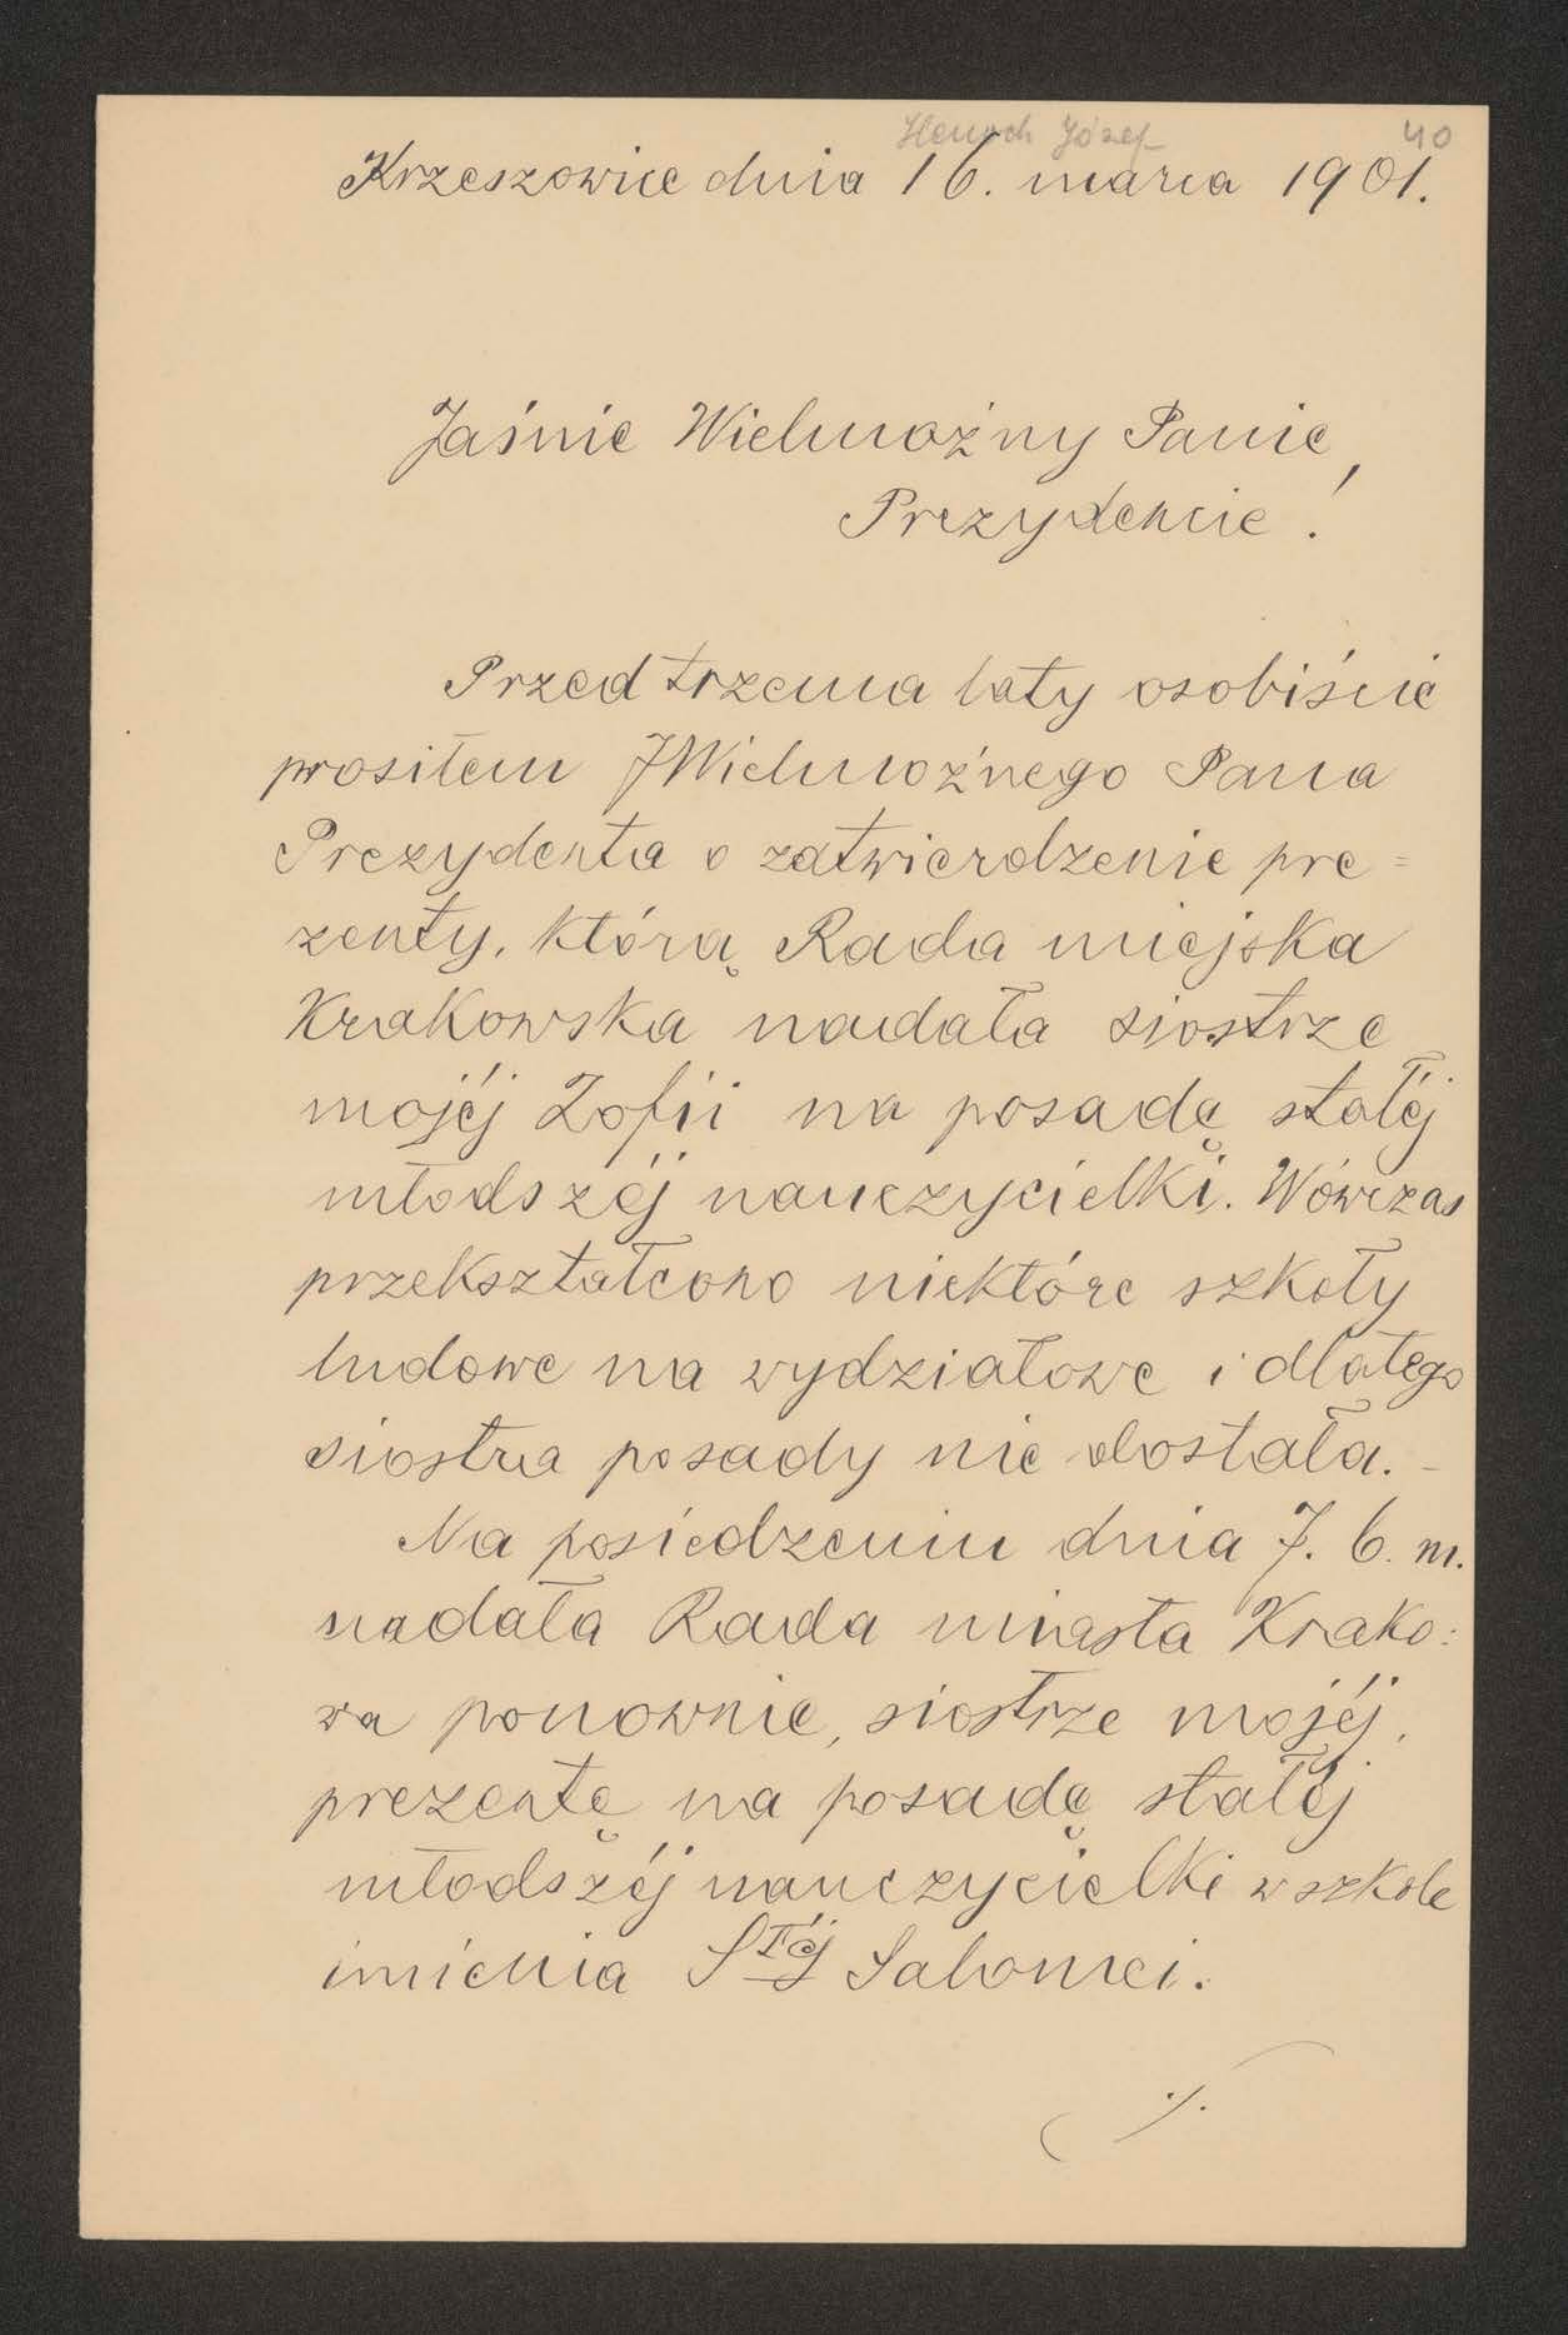 Józef 40
Krzeszowice dnia 16. marca 1901.
Jaśnie Wielmożny Panie,
Prezydencie!
Przed trzema laty osobiście
prosiłem JWielmożnego Pana
Prezydenta o zatwierdzenie pre=
zenty, którą Rada miejska
Krakowska nadała siostrze
mojéj Zofii na posadę stałéj
młodszéj nauczycielki. Wówczas
przekształcono niektóre szkoły
ludowe na wydziałowe i dlatego
siostra posady nie dostała. -
Na posiedzeniu dnia 7. b. m.
nadała Rada miasta Krako:
wa ponownie, siostrze mojéj,
prezentę na posadę stałéj
młodszéj nauczycielki w szkole
imienia Stéj Salomei.
./.